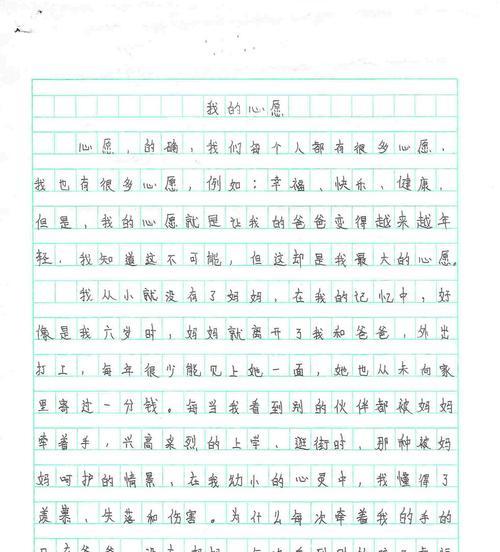 我的心愿
心愿，的确，我们每个人都有很多心愿，
我也有很多心愿，例如：幸福、快乐、健康，
但是，我的心愿就是让我的爸爸变得越来越年
轻，我知道这不可能，但这却是我最大的心愿。
我从小就没有了妈妈，在我的记忆中，好
像是我六岁时，妈妈就离开了我和爸爸，外出
打工，每年很少能见上她一面，她也从未向家
里寄过一分钱。每当我看到别的伙伴都被妈妈
牵着手，兴高采烈的上学、逛街时，那种被妈
妈呵护的情景，在我幼小的心灵中，我懂得了
羡慕、失落和伤害。为什么每次牵着我的手的